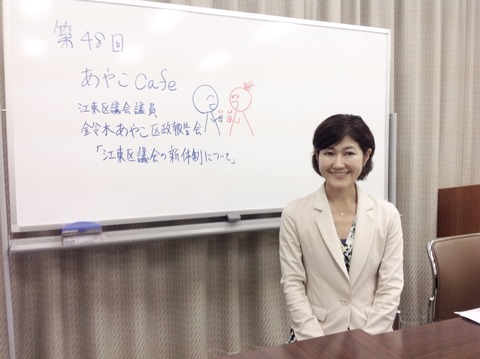 第48回
あやこ Cafe
江東区議会議員
鈴木あやこ区政報告会
「江東区議会の新体制について」